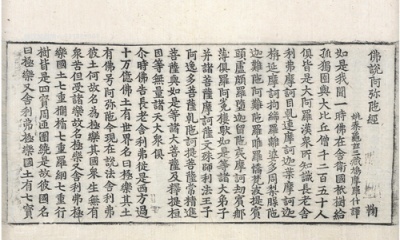 佛說阿弥陁經 鞠
姚秦龜茲三藏鳩摩羅什譯
如是我聞一時佛在舍衛國祇樹給
孤獨園與大比丘僧千二百五十人
俱皆是大阿羅漢衆所知識長老舍
利弗摩訶目乾連摩訶迦葉摩訶迦
栴延摩訶拘絺羅離婆多周梨槃陁
迦難陁阿難陁羅睺羅憍梵波提賓
頭盧頗羅墮迦留陁夷摩訶劫賓那
薄俱羅阿㝹樓馱如是等諸大弟子
并諸菩薩摩訶薩文殊師利法王子
阿逸多菩薩乾陁訶提菩薩常精進
菩薩與如是等諸大菩薩及釋提桓
因等無量諸天大衆俱
尒時佛告長老舍利弗從是西方過
十万億佛土有世界名曰極樂其土
有佛号阿弥陁今現在說法舍利弗
彼土何故名為極樂其國衆生無有
衆苦但受諸樂故名極樂又舍利弗極
樂國土七重欄楯七重羅網七重行
樹皆是四寶周匝圍繞是故彼國名
曰極樂又舍利弗極樂國土有七寶